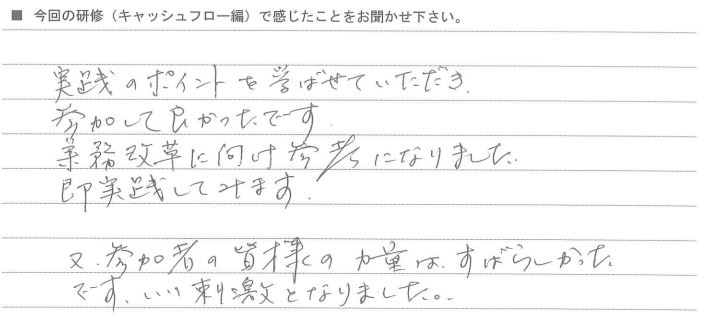 ■ 今回の研修（キャッシュフロー編）で感じたことをお聞かせ下さい。
実践のポイントを学ばせていただき、
参加して良かったです。
業務改革に向け参考になりました。
即実践してみます。
又、参加者の皆様の力量は、すばらしかった
です。いい刺激となりました。